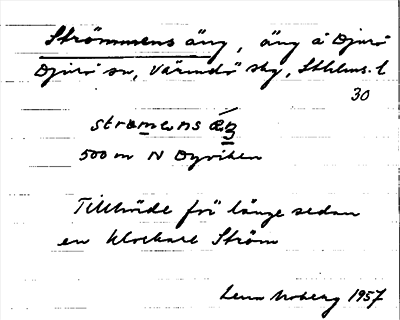 Strömmens äng, äng å Djurö
Djurö sn, Värmdö skg, Sthlms. l
30
strömens äŋ
500 m N Dyviken
Tillhörde för länge sedan
en klockare Ström
Lena Moberg 1957